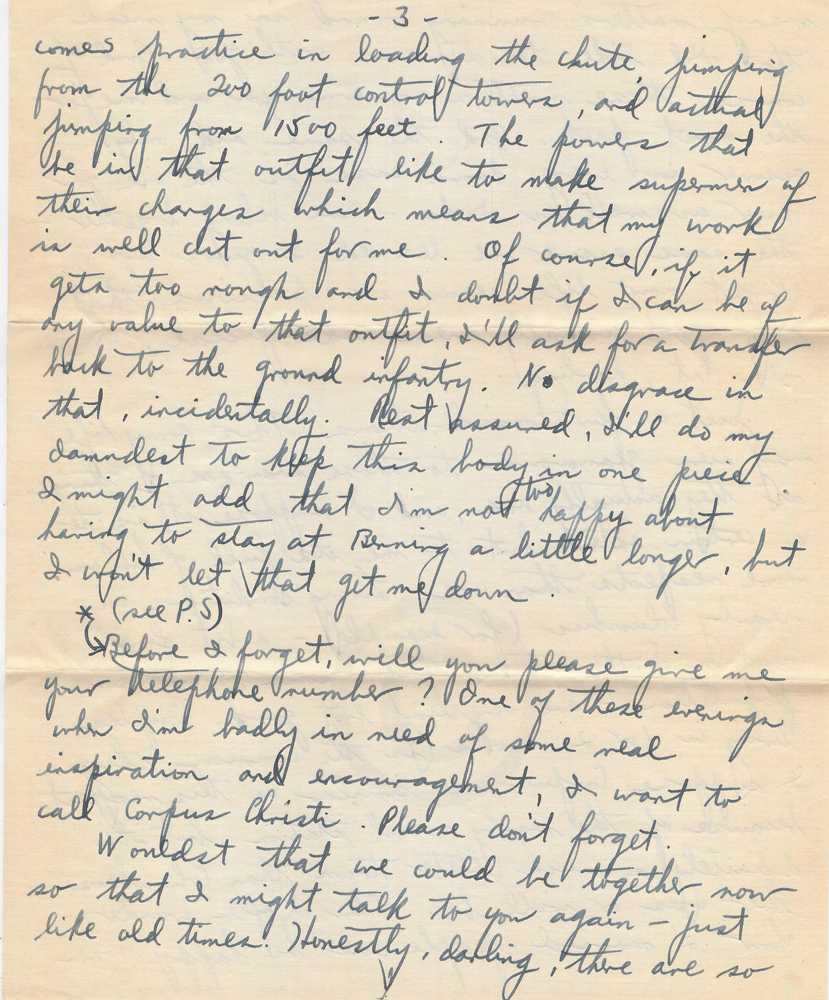 - 3 -
comes practice in loading the chute, jumping
from the 200 foot control towers, and actual
jumping from 1500 feet. The powers that
be in that outfit like to make supermen of
their charges which means that my work
is well cut out for me. Of course, if it
gets too rough and I doubt if I can be of
any value to that outfit, I'll ask for a transfer
back to the ground infantry. No disgrace in
that, incidentally. Rest assured, I'll do my
damndest to keep this body in one piece.
I might add that I'm not two happy about
having to stay at Benning a little longer, but
I won't let that get me down.
* (see P.S)
Before I forget, will you please give me
your telephone number? One of these evenings
when I'm badly in need of some real
inspiration and encouragement, I want to
call Corpus Christi. Please don't forget.
Wouldst that we could be together now
so that I might talk to you again - just
like old times. Honestly, darling, there are so